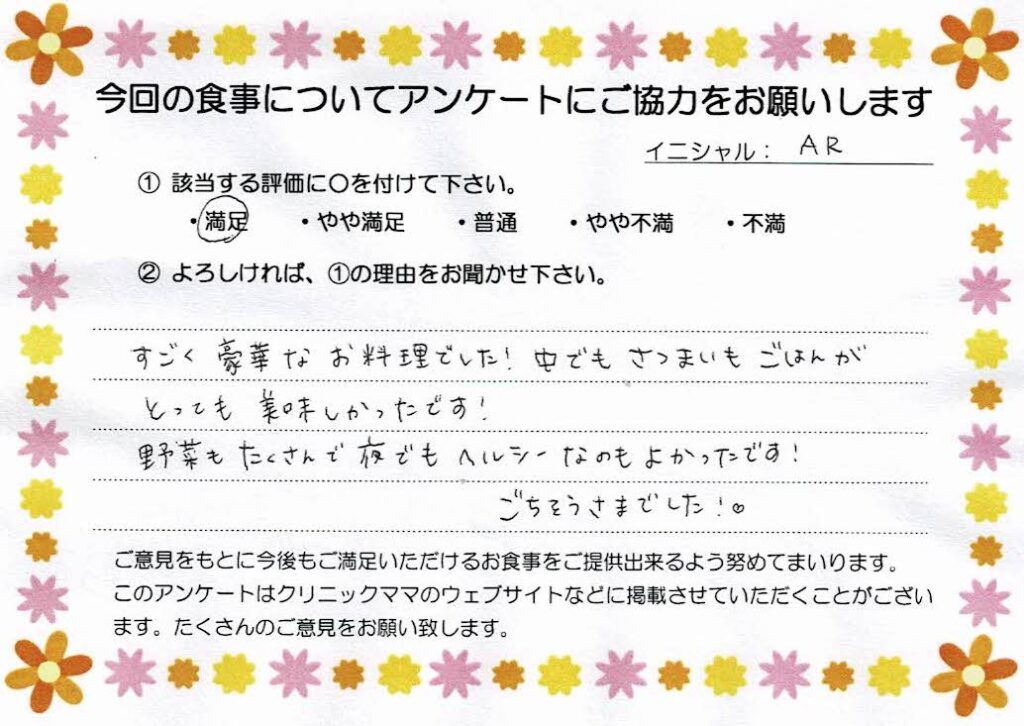 今回の食事についてアンケートにご協力をお願いします
イニシャル： AR
① 該当する評価に〇を付けて下さい。
・満足 ・やや満足 ・普通 ・やや不満 ・不満
② よろしければ、①の理由をお聞かせ下さい。
すごく豪華なお料理でした！中でもさつまいもごはんが
とっても美味しかったです！
野菜もたくさんで夜でもヘルシーなのもよかったです！
ごちそうさまでした！♡
ご意見をもとに今後もご満足いただけるお食事をご提供出来るよう努めてまいります。
このアンケートはクリニックママのウェブサイトなどに掲載させていただくことがござい
ます。たくさんのご意見をお願い致します。